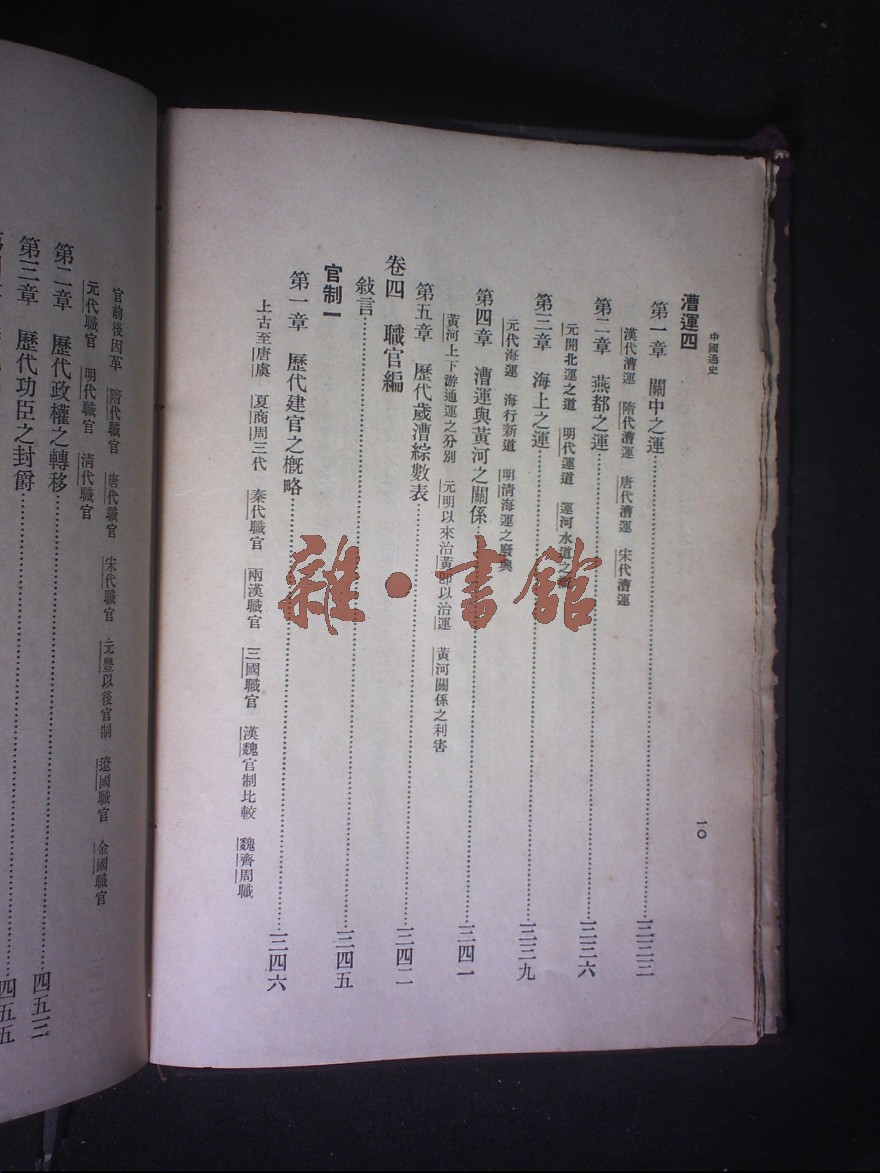 中國通史
一〇
漕運四
第一章　關中之運……三三三
漢代漕運　隋代漕運　唐代漕運　宋代漕運
第二章　燕都之運……三三六
元開北運之道　明代運道　運河水道之
第三章　海上之運……三三九
元代海運　海行新道　明清海運之廢興
第四章　漕運與黃河之關係……三四一
黃河上下游通運之分別　元明以來治黃即以治運　黃河關係之利害
第五章　歷代歲漕綜數表……三四二
卷四　職官編
敍言……三四五
官制一
第一章　歷代建官之概略……三四六
上古至唐虞　夏商周三代　秦代職官　兩漢職官　三國職官　漢魏官制比較　魏齊周職
官前後因革　隋代職官　唐代職官　宋代職官　元豐以後官制　遼國職官　金國職官
元代職官　明代職官　清代職官
第二章　歷代政權之轉移……四五三
第三章　歷代功臣之封爵……四五五
雜·書館